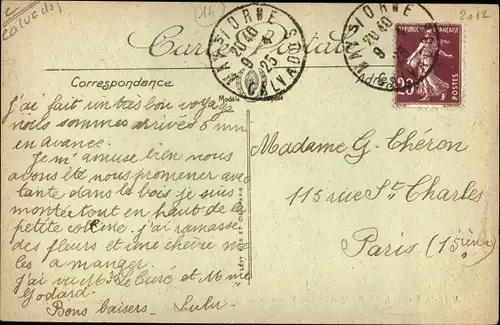 Calvados
(14)
2012
MAY-SUR-ORNE
20 40
9
25
CALVADOS
MAY-S/ORNE
20 40
9
25
RÉPUBLIQUE FRANÇAISE
20
POSTES
Carte Postale
Correspondance
Adresse
J'ai fait un très bon voyage
nous sommes arrivés 5 mn
en avance.
Je m'amuse bien nous
avons été nous promener avec
tante dans le bois je suis
montée tout en haut de la
petite colline. j'ai ramassé
des fleurs et une chèvre me
les a manger.
j'ai vu Mr le Curé et Mme
Godard.
Bons baisers - Lulu -
Madame G. Chéron
115 rue St Charles
Paris (15ième)